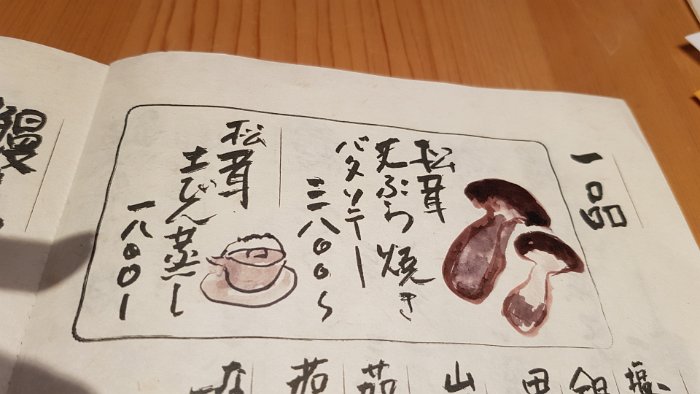 一品
松茸
天ぷら 焼き
バタソテー
三八〇〇〜
松茸
土びん蒸し
一八〇〇〜
鰻
山